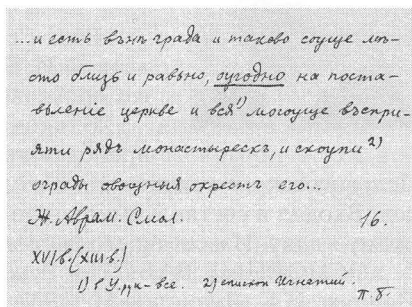 ...и есть вънѣ града и таково соуще мѣ-
сто близь и равьно, оугодно на поста-
вьление церкве и вся¹⁾ могоуще въспри-
яти рядъ монастырескъ, и скоупи²⁾
ограды овощныя окрестъ его...
Ж. Аврам. Смол. 16.
XVI в. (XIII в.)
1) в У. рук– все. 2) епископ Игнатий.
п.б.